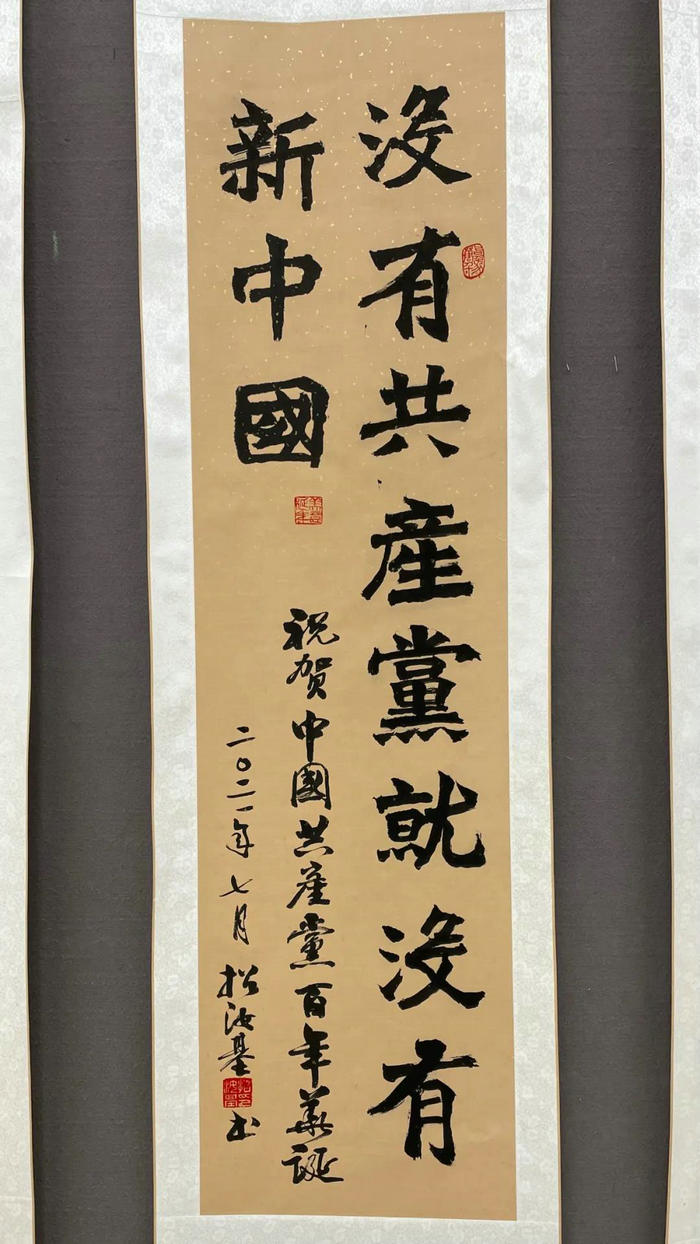 沒有共産黨就沒有
新中國
祝賀中國共産黨百年華誕
二〇二一年七月 招汝基 书